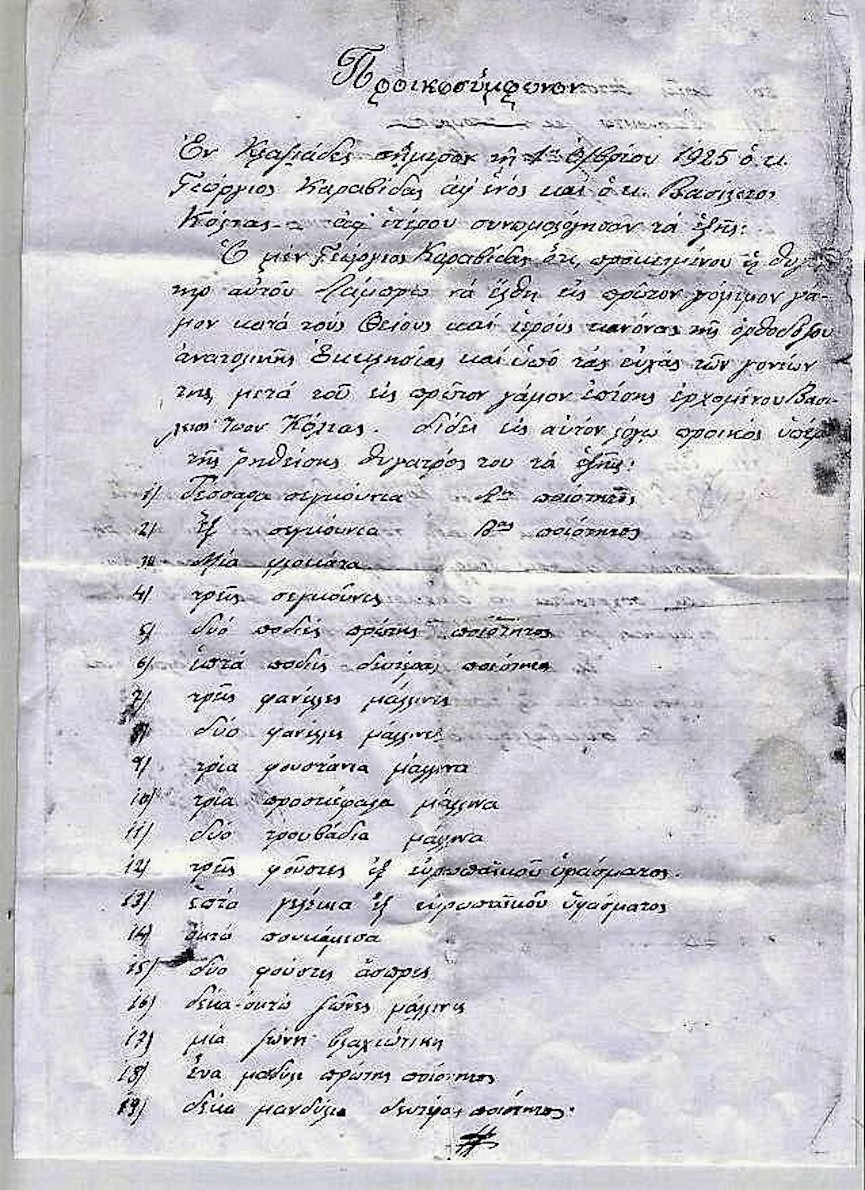 Προικοσύμφωνον
Ἐν Κλαψιάδες σήμερον τῇ 1ῃ 8βρίου 1925 ὁ κ.
Γεώργιος Καραβίδας ἀφ' ἑνός καί ὁ κ. Βασίλειος
Κόλιας ἀφ' ἑτέρου συνωμολόγησαν τά ἑξῆς:
Ὁ μέν Γεώργιος Καραβίδας ὅτι, προκειμένου ἡ θυγά-
τηρ αὐτοῦ Λάμπρω νά ἔλθῃ εἰς πρῶτον νόμιμον γά-
μον κατά τούς θείους καί ἱερούς κανόνας τῆς ὀρθοδόξου
ἀνατολικῆς Ἐκκλησίας καί ὑπό τάς εὐχάς τῶν γονέων
της μετά τοῦ εἰς πρῶτον γάμον ἐπίσης ἐρχομένου Βασι-
λείου Κόλιας. Δίδει εἰς αὐτόν λόγω προικός ὑπέρ
τῆς ῥηθείσης θυγατρός του τά ἑξῆς:
1) Τέσσαρα σεγκούνια Αης ποιότητος
2) ἕξ σεγκούνια Βας ποιότητος
3) Μία φλοκάτα
4) τρεῖς σεγκούνες
5) δύο ποδιές πρώτης ποιότητος
6) ἑπτά ποδιές δευτέρας ποιότητος
7) τρεῖς φανέλλες μάλλινες
8) δύο φανέλλες μάλλινες
9) τρία φουστάνια μάλλινα
10) τρία προσκέφαλα μάλλινα
11) δύο τρουβάδια μάλλινα
12) τρεῖς φοῦστες ἐξ εὐρωπαϊκοῦ ὑφάσματος.
13) ἑπτά γελέκια ἐξ εὐρωπαϊκοῦ ὑφάσματος
14) ὀκτώ πουκάμισα
15) δύο φούστες ἄσπρες
16) δέκα-ὀκτώ ζῶνες μάλλινες
17) μία ζώνη βλαχιώτικη
18) ἕνα μανδύλι πρώτης ποιότητος
19) δέκα μανδύλια δευτέρας ποιότητος.